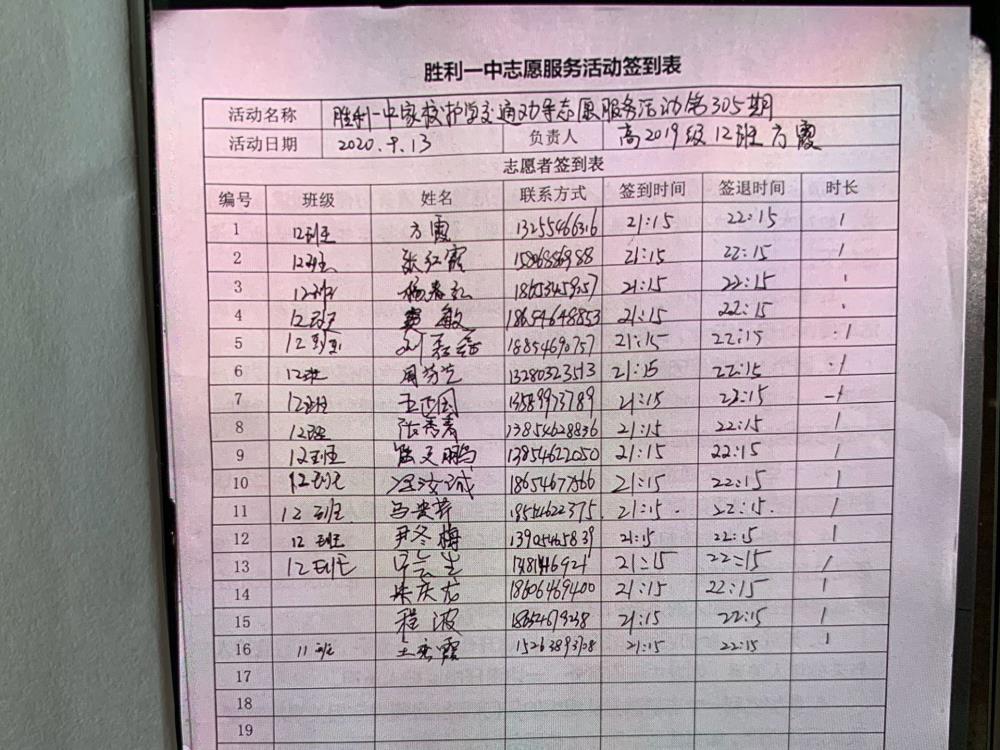 胜利一中志愿服务活动签到表
活动名称 胜利一中家校护学交通劝导志愿服务活动第305期
活动日期 2020.9.13 负责人 高2019级12班方霞
志愿者签到表
编号 班级 姓名 联系方式 签到时间 签退时间 时长
1 12班 方霞 21:15 22:15 1
2 12班 张红霞 21:15 22:15 1
3 12班 21:15 22:15 1
4 12班 敏 18654648853 21:15 22:15 1
5 12班 18854690757 21:15 22:15 1
6 12班 周芬芝 13280323513 21:15 22:15 1
7 12班 13589973789 21:15 22:15 1
8 12班 张秀春 13854628836 21:15 22:15 1
9 12班 13854622050 21:15 22:15 1
10 12班 21:15 22:15 1
11 12班 21:15 22:15 1
12 12班 尹冬梅 13905465839 21:15 22:15 1
13 12班 21:15 22:15 1
14 18606469400 21:15 22:15 1
15 程波 21:15 22:15 1
16 11班 21:15 22:15 1
17
18
19